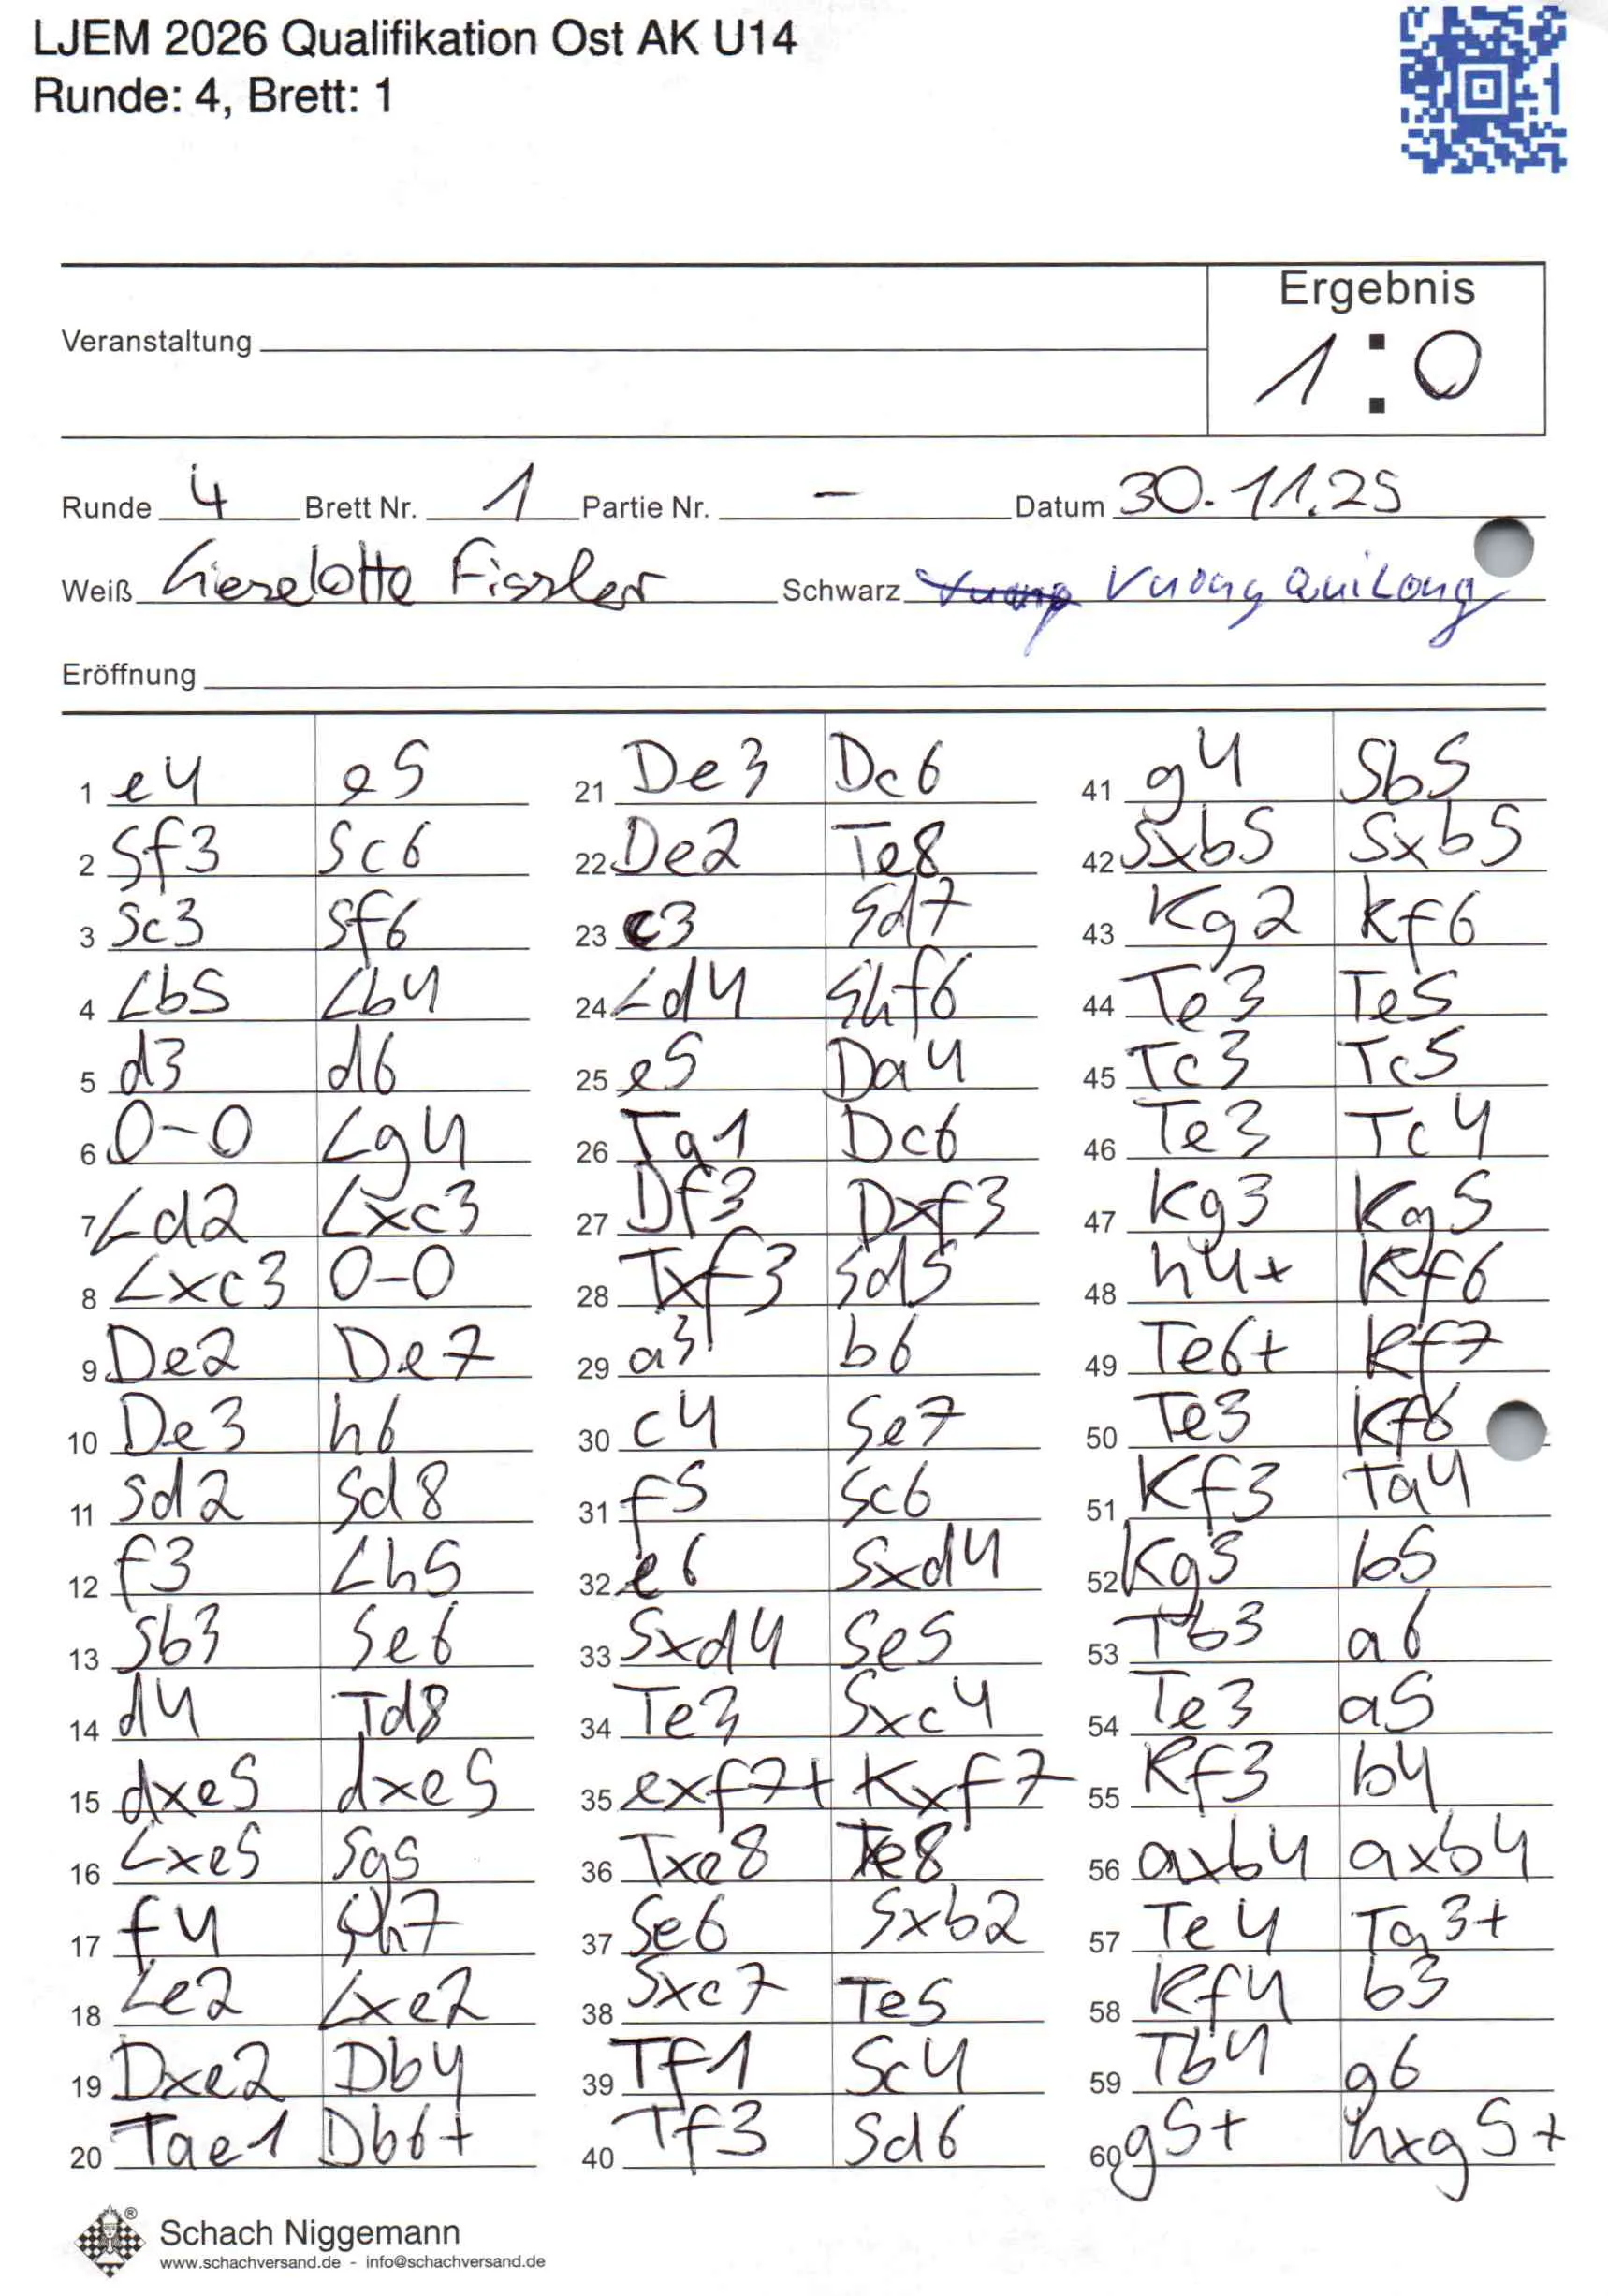 LJEM 2026 Qualifikation Ost AK U14
Runde: 4, Brett: 1
Ergebnis
Veranstaltung
1 : 0
Runde 4 Brett Nr. 1 Partie Nr. – Datum 30.11.25
Weiß Lieselotte Fissler Schwarz Vuong Vuong QuiLong
Eröffnung
1 e4 e5
2 Sf3 Sc6
3 Sc3 Sf6
4 Lb5 Lb4
5 d3 d6
6 0-0 Lg4
7 Ld2 Lxc3
8 Lxc3 0-0
9 De2 De7
10 De3 h6
11 Sd2 Sd8
12 f3 Lh5
13 Sb3 Se6
14 d4 Td8
15 dxe5 dxe5
16 Lxe5 Sg5
17 f4 Sh7
18 Le2 Lxe2
19 Dxe2 Db4
20 Tae1 Db6+
21 De3 Dc6
22 De2 Te8
23 c3 Sd7
24 Ld4 Shf6
25 e5 Da4
26 Ta1 Dc6
27 Df3 Dxf3
28 Txf3 Sd5
29 a3 b6
30 c4 Se7
31 f5 Sc6
32 e6 Sxd4
33 Sxd4 Se5
34 Te3 Sxc4
35 exf7+ Kxf7
36 Txe8 Te8
37 Se6 Sxb2
38 Sxc7 Te5
39 Tf1 Sc4
40 Tf3 Sd6
41 g4 Sb5
42 Sxb5 Sxb5
43 Kg2 Kf6
44 Te3 Te5
45 Tc3 Tc5
46 Te3 Tc4
47 Kg3 Kg5
48 h4+ Kf6
49 Te6+ Kf7
50 Te3 Kf6
51 Kf3 Ta4
52 Kg3 b5
53 Tb3 a6
54 Te3 a5
55 Kf3 b4
56 axb4 axb4
57 Te4 Ta3+
58 Kf4 b3
59 Tb4 g6
60 g5+ hxg5+
Schach Niggemann
www.schachversand.de - info@schachversand.de